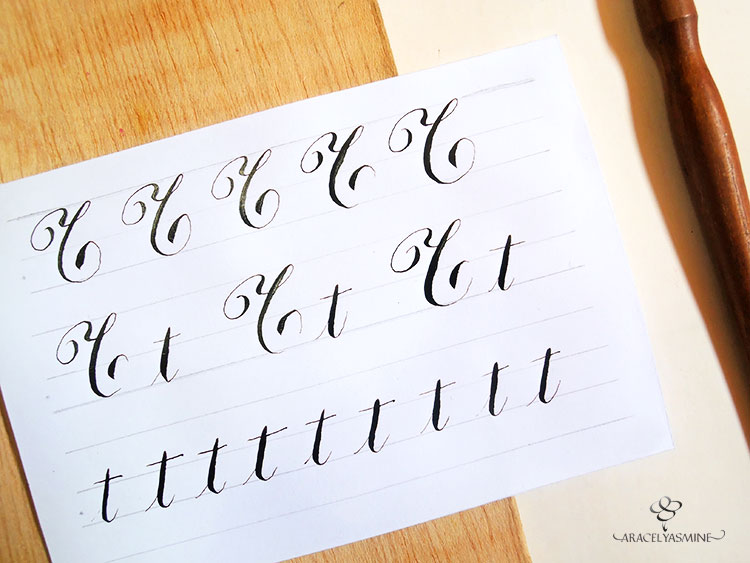 T T T T T
T t T t T t
t t t t t t t t t
ARACELYASMINE